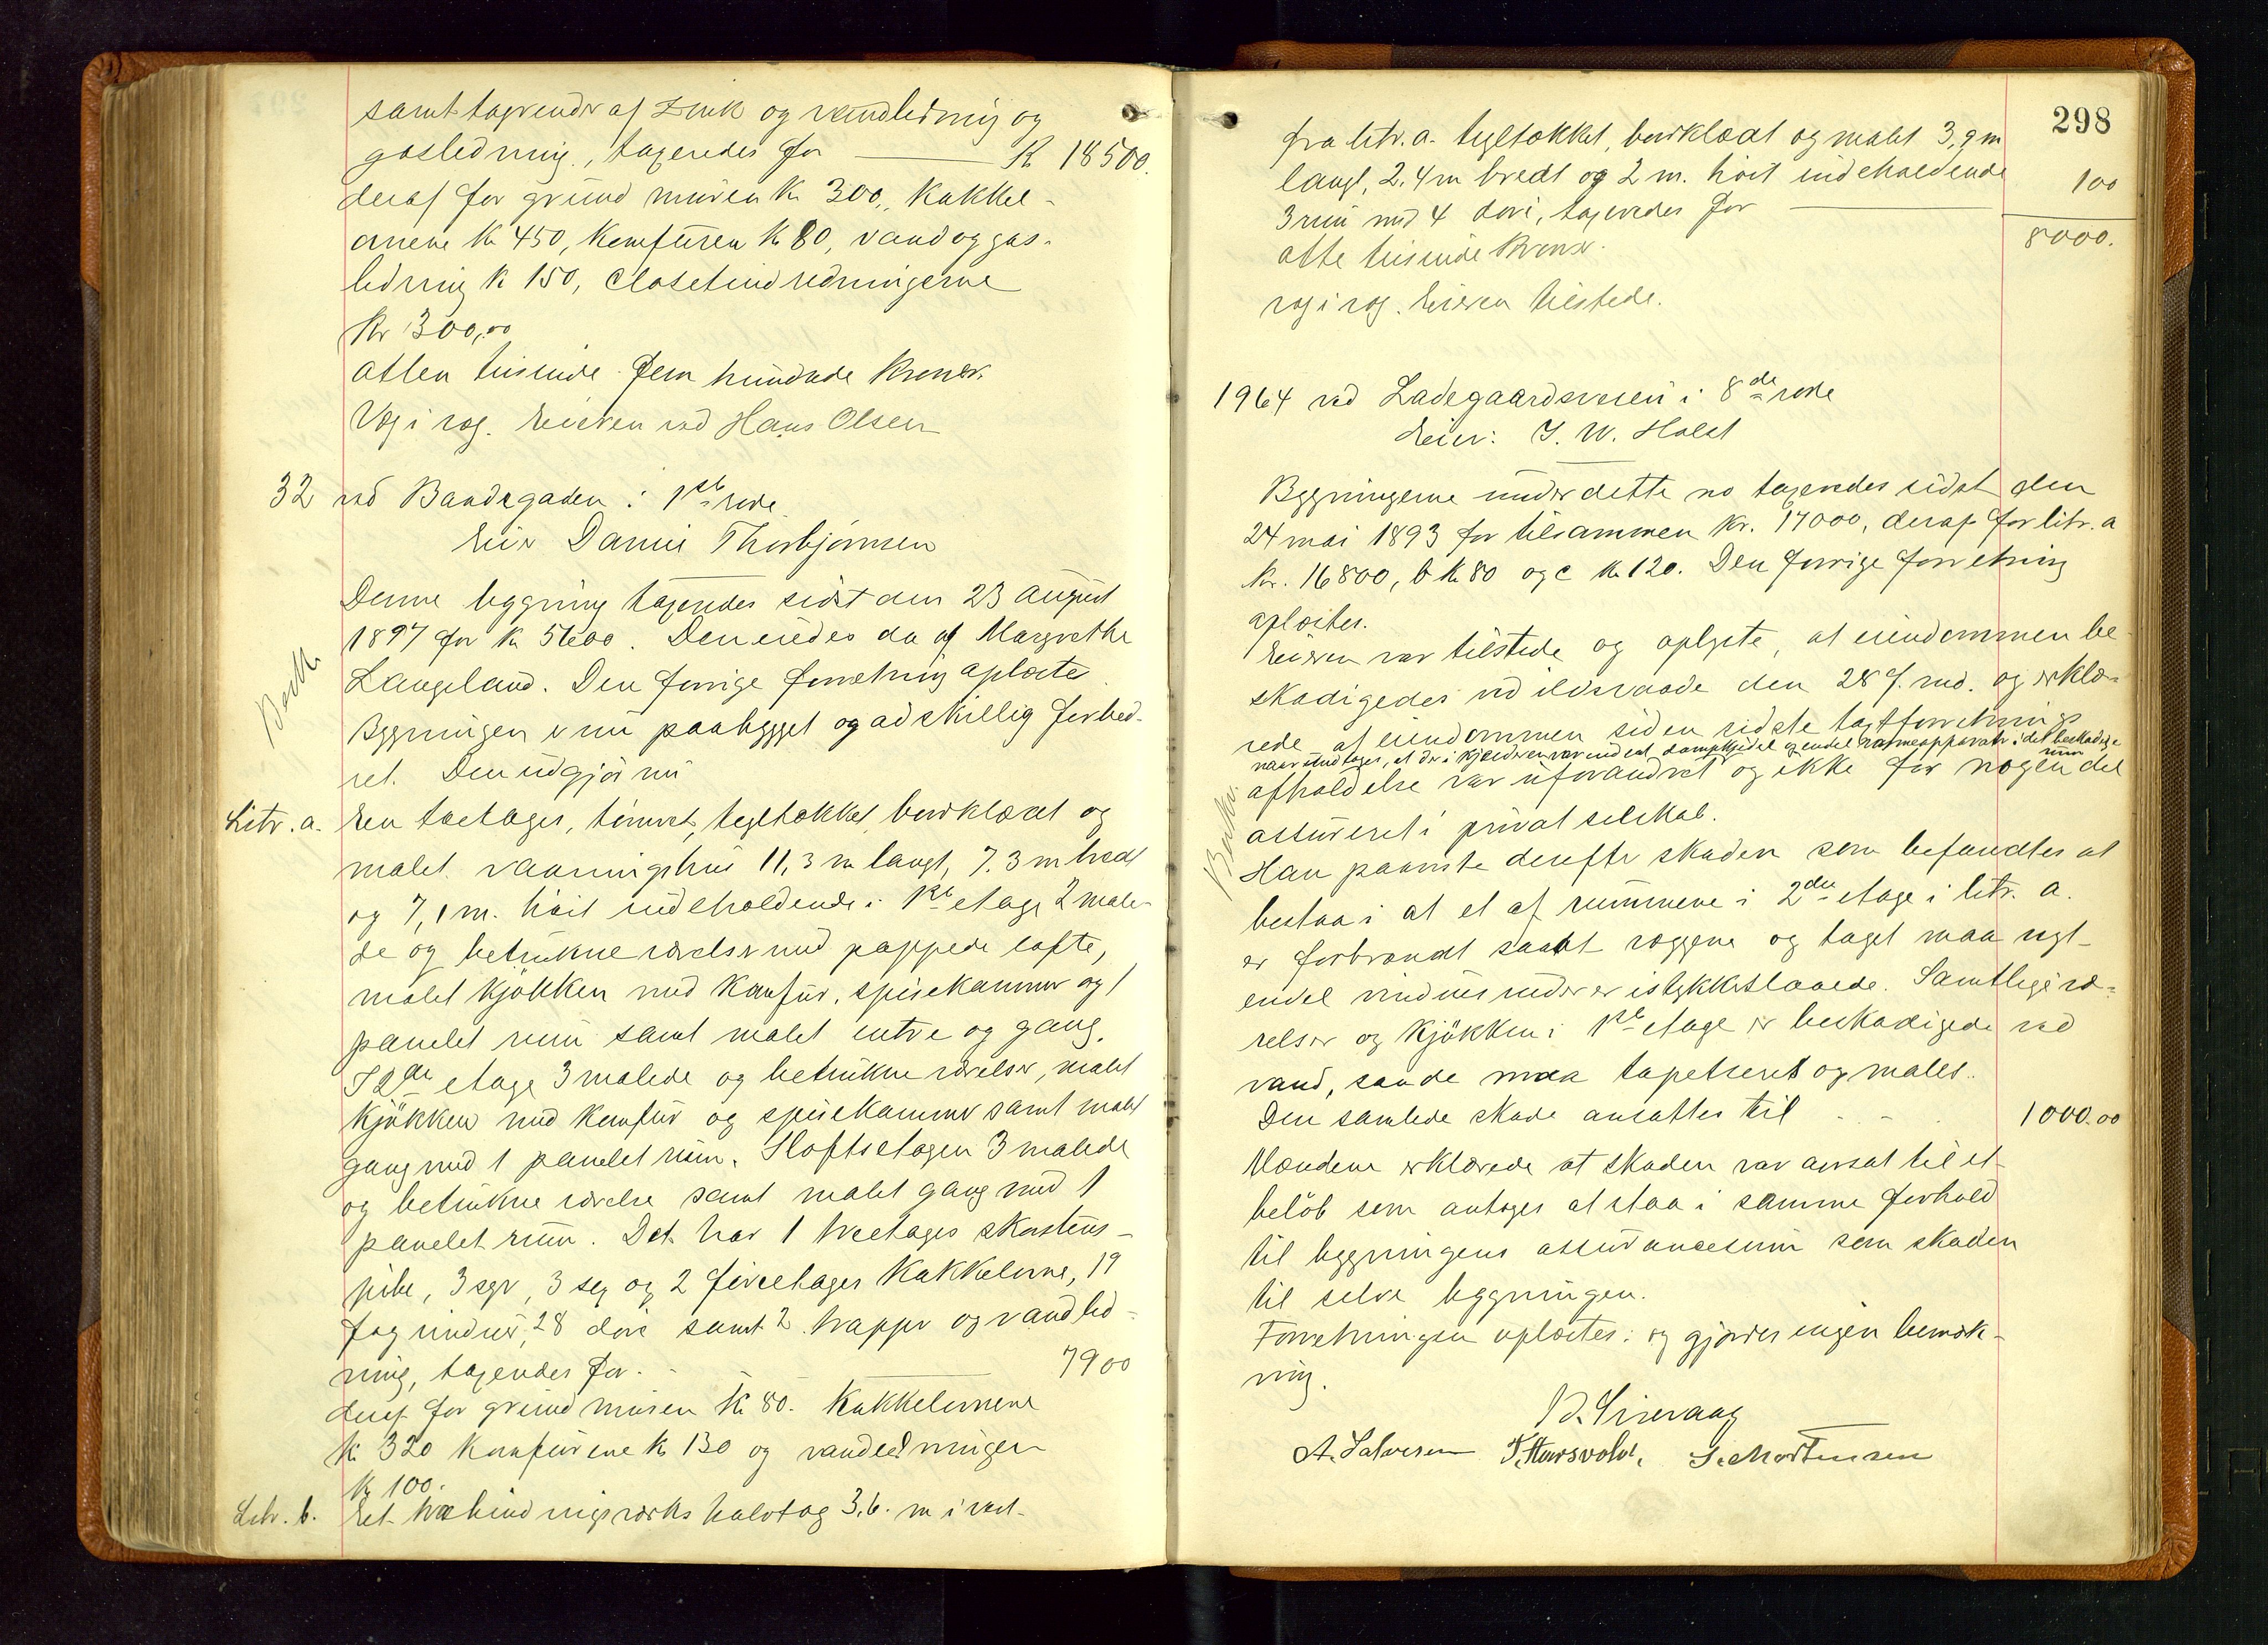 samt tagrender af Zink og vandledning og
gasledning, taxeredes for — K 18500.
deraf for grund muren K 300, Kakkel-
onene K 450, Komfuren K 80, vand og gas-
ledning K 150, Closetindredningerne
Kr 300,00
atten tusinde fem hundrede Kroner.
Vog i vog. Eieren ved Hans Olsen
32 ved Bandegaden i 1ste rode
Eier Danie Thorbjørnsen
Denne bygning taxeredes sidst den 23 august
1897 for K 5600. Den eiedes da af Margrethe
Langeland. Den forrige forretning oplæste
Bygningen er nu paabygget og adskillig forbed-
ret. Den udgjør nu
Litr. a. En toetages, tømret, tegltækket, bordklædt og
malet vaaningshus 11,3 m langt, 7.3 m bredt
og 7,1 m. høit indeholdende i 1ste etage 2 male-
de og betrukne værelser med pappede lofte,
malet Kjøkken med Komfur, spisekammer og 1
panelet rum samt malet entre og gang.
I 2den etage 3 malede og betrukne værelser, malet
Kjøkken med Komfur og spisekammer samt malet
gang med 1 panelet rum. I loftsetagen 3 malede
og betrukne værelse samt malet gang med 1
panelet rum. Det har 1 treetages skorstens-
pibe, 3 og 2 fireetages Kakkelovne, 19
fag vinduer, 28 døre samt 2 trapper og vandled-
ning, taxeredes for — 7900
deraf for grund muren K 80. Kakkelovnene
K 320 Komfurene K 130 og vandledningen
K 100.
Litr. b. Et træbindingsværks halvtag 3,6. m i vest-
298
fra litr. a. tegltækket, bordklædt og malet 3,9 m
langt, 2.4 m bredt og 2 m. høit indeholdende
3 rum med 4 døre, taxeredes for — 100
8000.
otte tusinde Kroner.
vog i vog. Eieren tilstede.
1964 ved Ladegaardsveien i 8de rode
Eier: J. W. Holst
Bygningerne under dette no taxeredes sidst den
24 mai 1893 for tilsammen Kr. 17000, deraf for litr. a
Kr. 16800, b K 80 og c K 120. Den forrige forretning
oplæstes.
Eieren var tilstede og oplyste, at eiendommen be-
skadigedes ved ildsvaade den 28 f. md. og erklæ-
rede at eiendommen siden sidste taxtforretnings
naar undtages, at der i Kjælderen var indsat dampkjedel og endel varmeapparater i det beskadige rum
afholdelse var uforandret og ikke for nogen del
assureret i privat selskab.
Han paaviste derefter skaden som befandtes at
bestaa i at et af rummene i 2den etage i litr. a.
er forbrændt samt væggene og taget maa
endel vinduesruder er istykkerslaaede. Samtlige væ-
relser og Kjøkken i 1ste etage er beskadigede ved
vand, saa de maa tapetseres og males.
Den samlede skade ansattes til - - - 1000.00
Mændene erklærede at skaden var ansat til et
beløb som antoges at staa i samme forhold
til bygningens assurancesum som skaden
til selve bygningen.
Forretningen oplæstes: og gjordes ingen bemærk-
ning.
A. Salvesen S. Mortensen